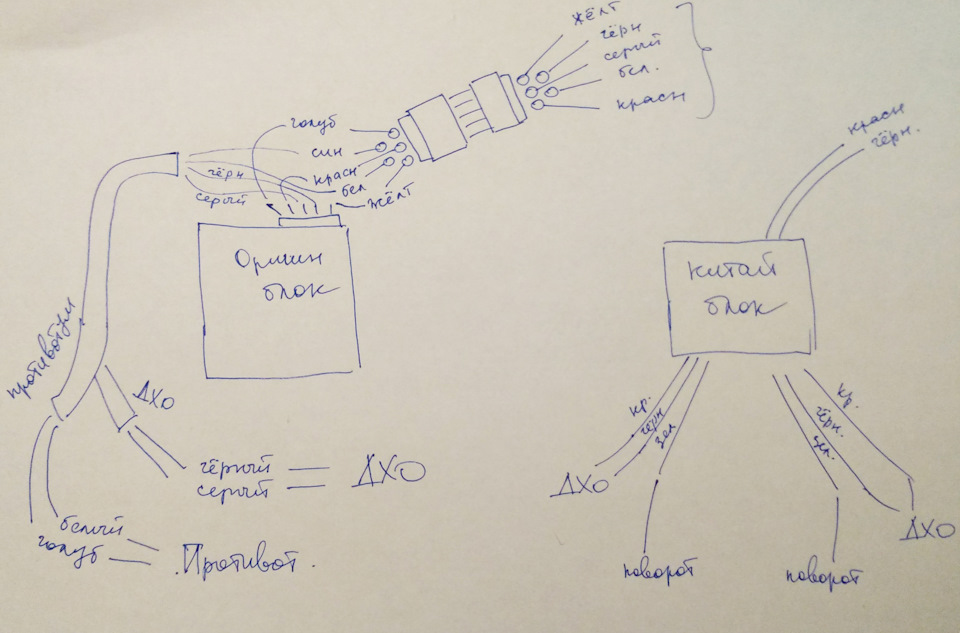 жёлт
чёрн
серый
бел.
красн
голуб
син
чёрн
красн
бел
серый
жёлт
Оригин
блок
противотум
ДХО
чёрный
серый
ДХО
белый
голуб
Противот.
красн
чёрн.
Китай
блок
кр.
чёрн
зел
ДХО
поворот
кр.
чёрн.
зел.
ДХО
поворот